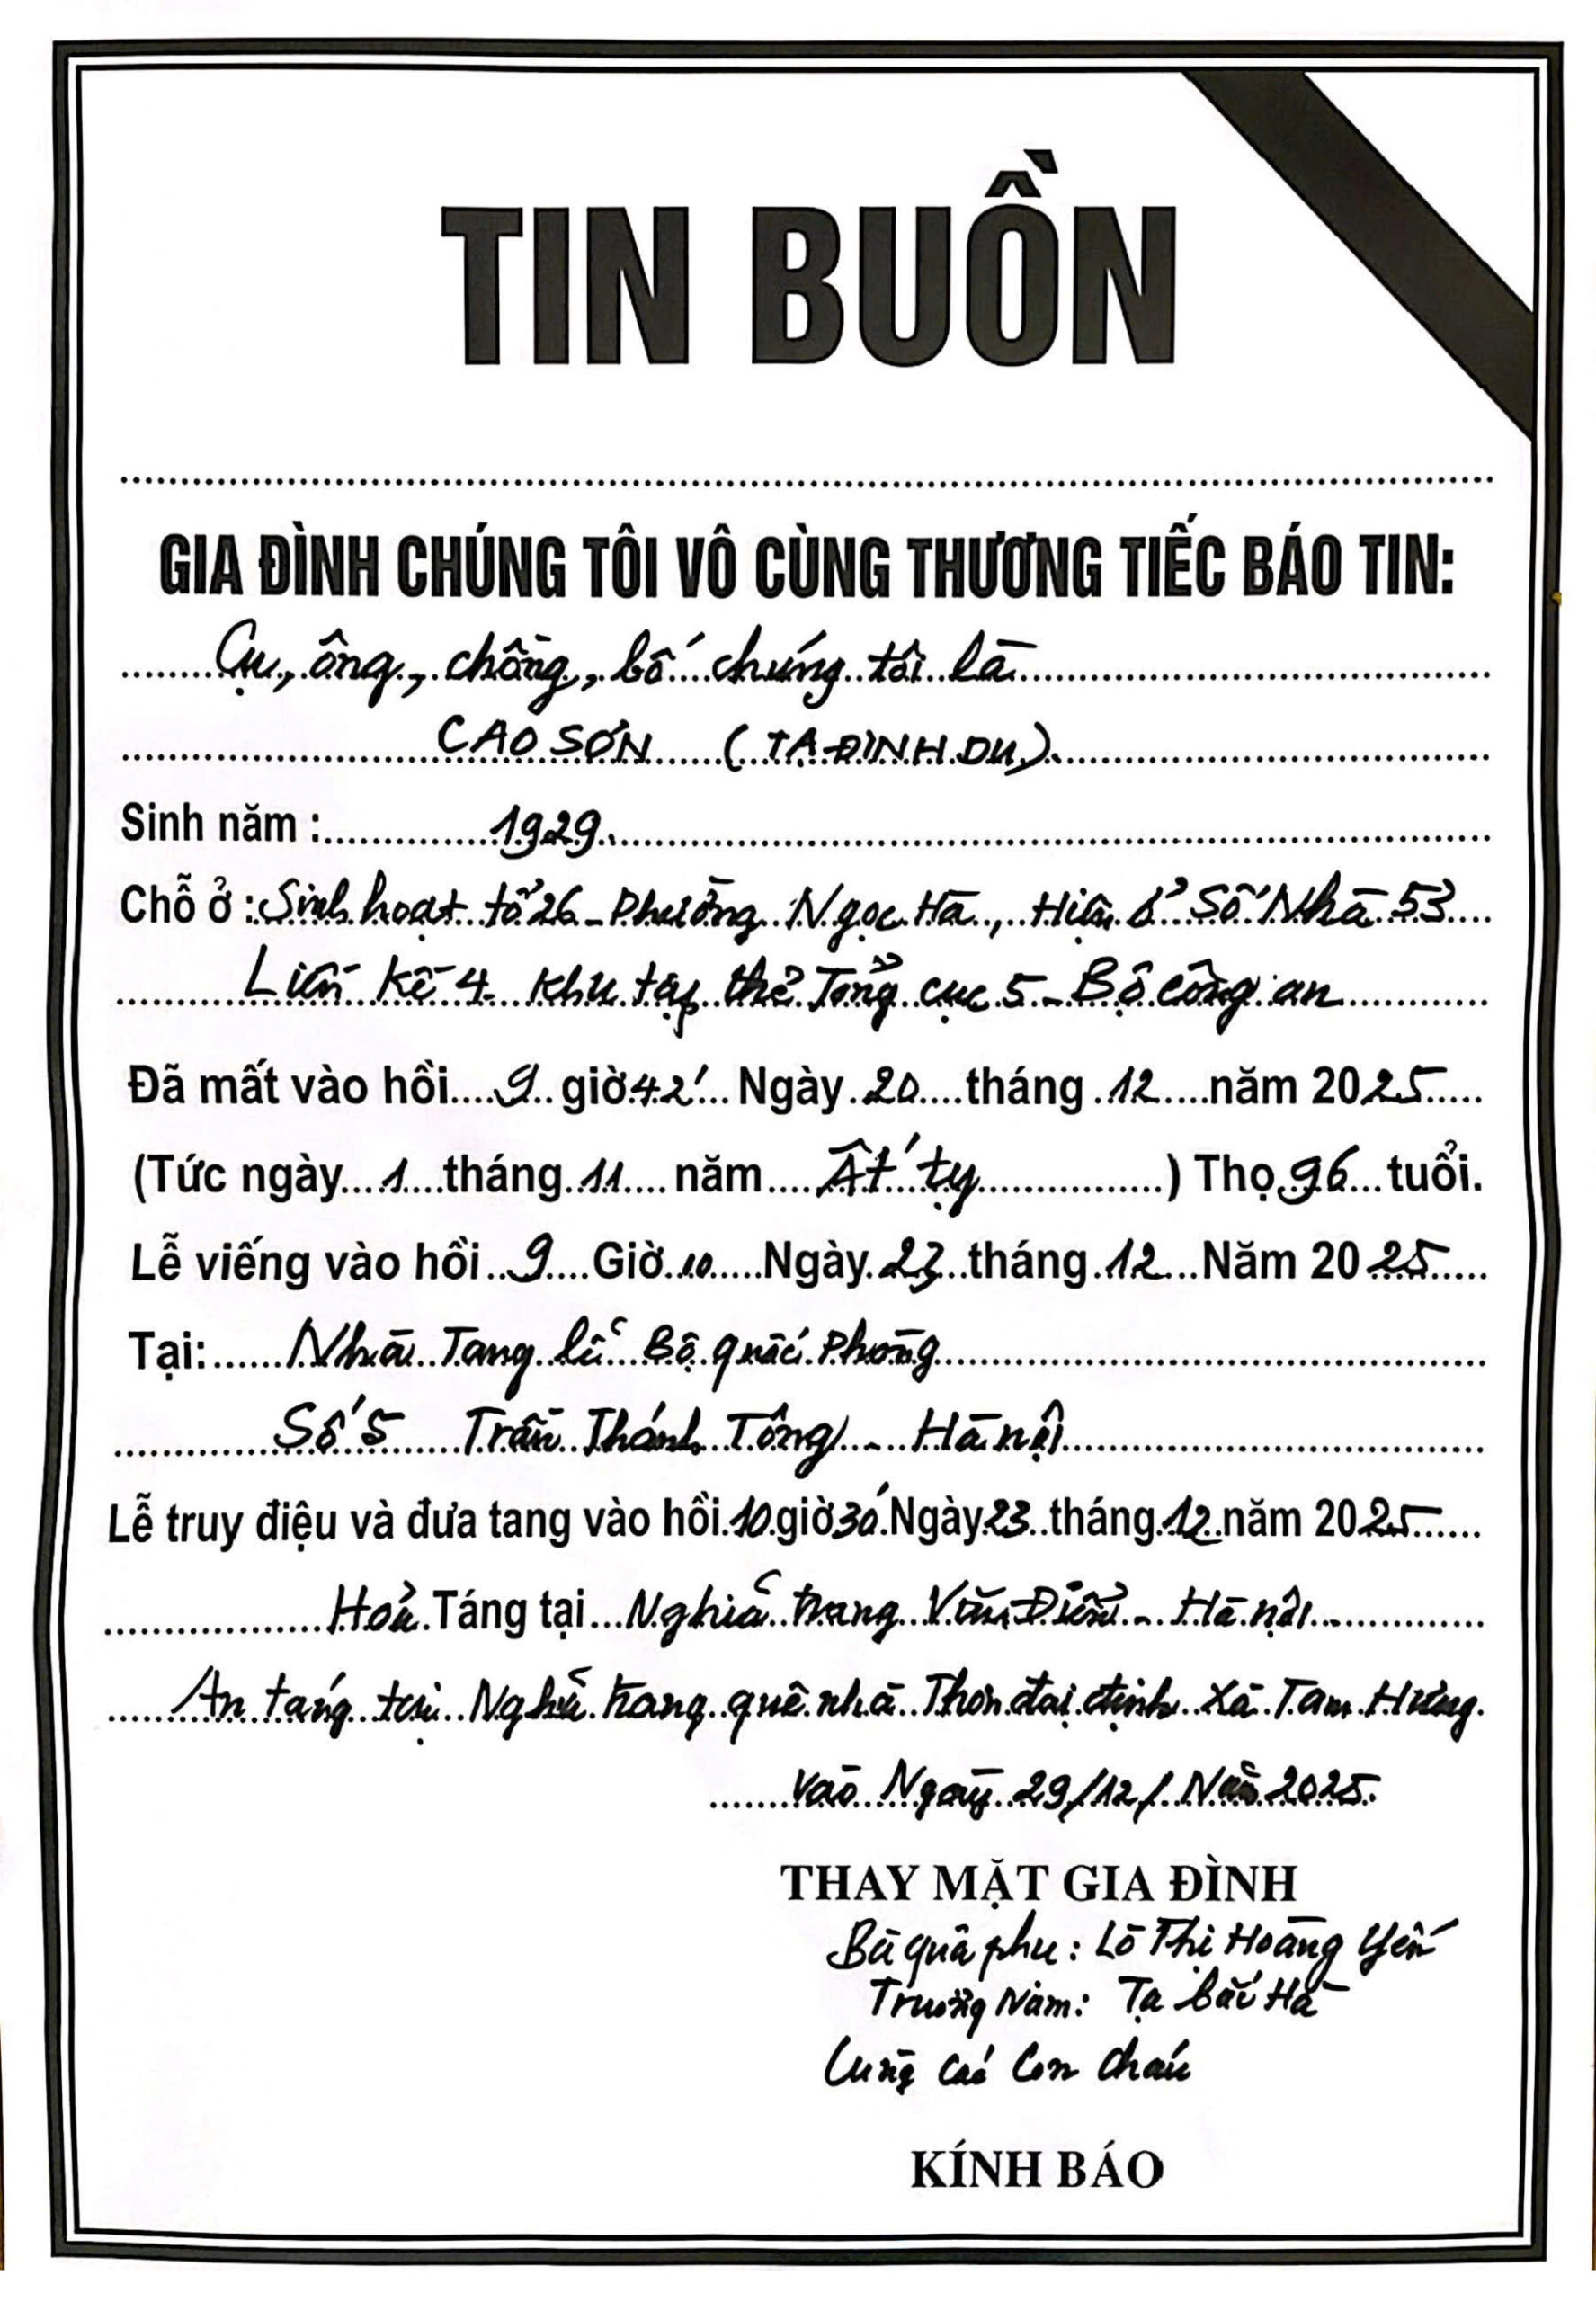 TIN BUỒN
GIA ĐÌNH CHÚNG TÔI VÔ CÙNG THƯƠNG TIẾC BÁO TIN:
Cụ, ông, chồng, bố chúng tôi là
CAO SƠN (TẠ ĐÌNH DU)
Sinh năm : 1929
Chỗ ở : Sinh hoạt tổ 26 - Phường Ngọc Hà, Hiện ở Số Nhà 53
Liền Kề 4 Khu tập thể Tổng cục 5 - Bộ công an
Đã mất vào hồi 9 giờ 42' Ngày 20 tháng 12 năm 2025
(Tức ngày 1 tháng 11 năm Ất tỵ ) Thọ 96 tuổi.
Lễ viếng vào hồi 9 Giờ 10 Ngày 23 tháng 12 Năm 2025
Tại: Nhà Tang lễ Bộ quốc Phòng
Số 5 Trần Thánh Tông - Hà nội
Lễ truy điệu và đưa tang vào hồi 10 giờ 30' Ngày 23 tháng 12 năm 2025
Hoả Táng tại Nghĩa trang Văn Điển - Hà nội
An táng tại Nghĩa trang quê nhà Thôn đại định Xã Tam Hưng
Vào Ngày 29/12/ Năm 2025
THAY MẶT GIA ĐÌNH
Bà quả phụ: Lò Thị Hoàng Yến
Trưởng Nam: Tạ bắc Hà
Cùng các con cháu
KÍNH BÁO